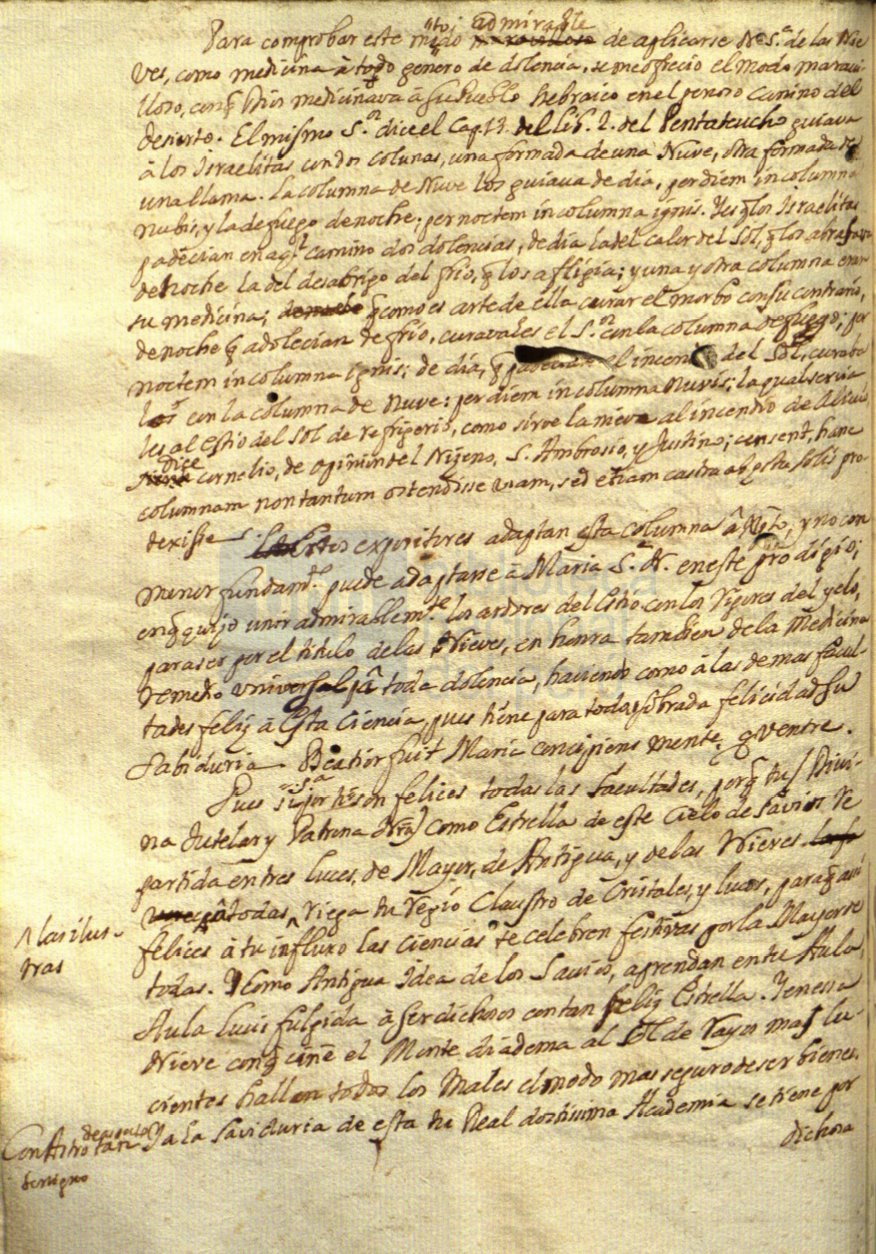 Para comprobar este modo admirable de aplicarse Nᵃ Sᵃ de las Nie
ves, como medicina â todo genero de dolencia, se me ofrecio el modo maravi
lloso, conq̃ Dios medicinava â su Pueblo hebraico en el penoso camino del
desierto. El mismo S.ᵒʳ dice el Cap. 13. del Lib. 2. del Pentateucho guiava
â los Israelitas con dos colunas, una formada de una Nuve, otra formada de
una llama. La columna de Nuve los guiava de dia, per diem in columna
nubis, y la de fuego de noche, per noctem in columna ignis. Yes q̃ los Israelitas
padecian en aq̃l camino dos dolencias, de dia la del calor del Sol, q̃ los abrasava
de noche la del desabrigo del frio, q̃ los afligia; y una y otra columna eran
su medicina; q̃ como es arte de ella curar el morbo con su contrario,
de noche q̃ adolecian de frio, curavales el S.ᵒʳ con la columna de fuego; per
noctem in columna ignis; de dia, q̃ el incendio del Sol, curaba
los con la columna de Nuve: per diem in columna nuvis; la qual servia
les al estio del Sol de refrigerio, como sirve la nieve al incendio de
dice Cornelio, de opinion del Niseno, S. Ambrosio, y Justino; censent, hanc
columnam non tantum ostendisse viam, sed etiam castra ab æstu solis pro
texisse.
expositores adaptan esta columna â Xp̃to, y no con
menor fundam.ᵗᵒ puede adaptarse â Maria S.ᵃ N. en este prodigio;
en q̃ quijo unir admirablem.ᵗᵉ los ardores del Estio con los rigores del yelo,
para ser por el titulo de las Nieves, en honra tambien de la Medicina
remedio universal pâ toda dolencia, haciendo como â las demas facul-
tades feliz â esta Ciencia, pues tiene para todo sobrada felicidad su
Sabiduria. Beatior fuit Maria concipiens mente, q̃ ventre.
Pues Sʳᵃ por ti son felices todas las facultades, porq̃ tu / Divi-
na Tutelar y Patrona nr̃a / como Estrella de este Cielo de Savios re
partida en tres luces, de Mayor, de Antigua, y de las Nieves
pâ todas, riega tu regio Claustro de Cristales, y luces, para q̃ asi
^ las ilus-
tras
felices â tu influxo las ciencias te celebren festivas por la Mayor de
todas. Y Como Antigua Idea de los Savios, aprendan en tu Aula,
Aula lucis fulgida â ser dichosos con tan feliz Estrella. Y en essa
Nieve con q̃ ciñe el Monte diadema al Sol de rayos mas lu-
cientes hallen todos los Males el modo mas seguro de ser bienes.
Con Astro tan benigno
Y a la Saviduria de esta tu Real doctissima Academia se tiene por
dichosa